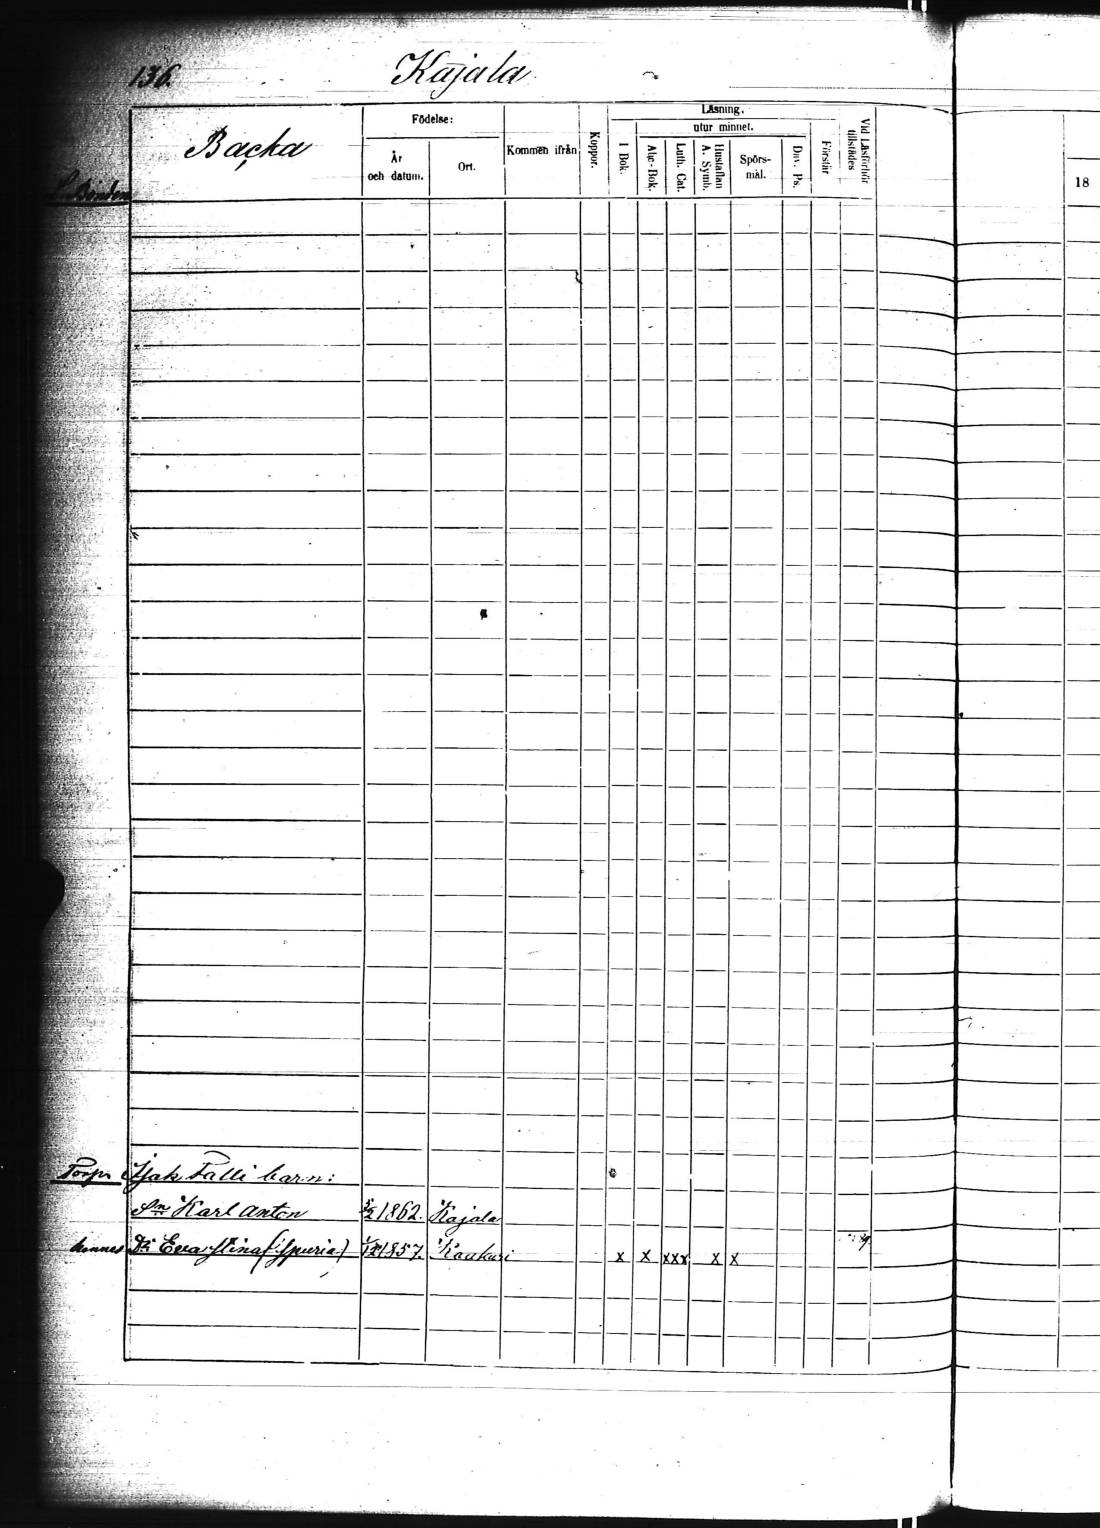 136.
Kajala
Backa
Bonden
Födelse:
År
och datum.
Ort.
Kommen ifrån
Koppor.
Läsning.
I Bok.
utur minnet.
Abc-Bok.
Luth. Cat.
Hustaflan
A. Symb.
Spörs-
mål.
Dav. Ps.
Förstår
Vid Läsförhör
tillstädes
18
Torpr Isak Talli barn:
Sn Karl Anton 5/2 1862. Kajala
hennes Dr Eva Stina (: spuria) 1857. Kaukuri x x xxx x x